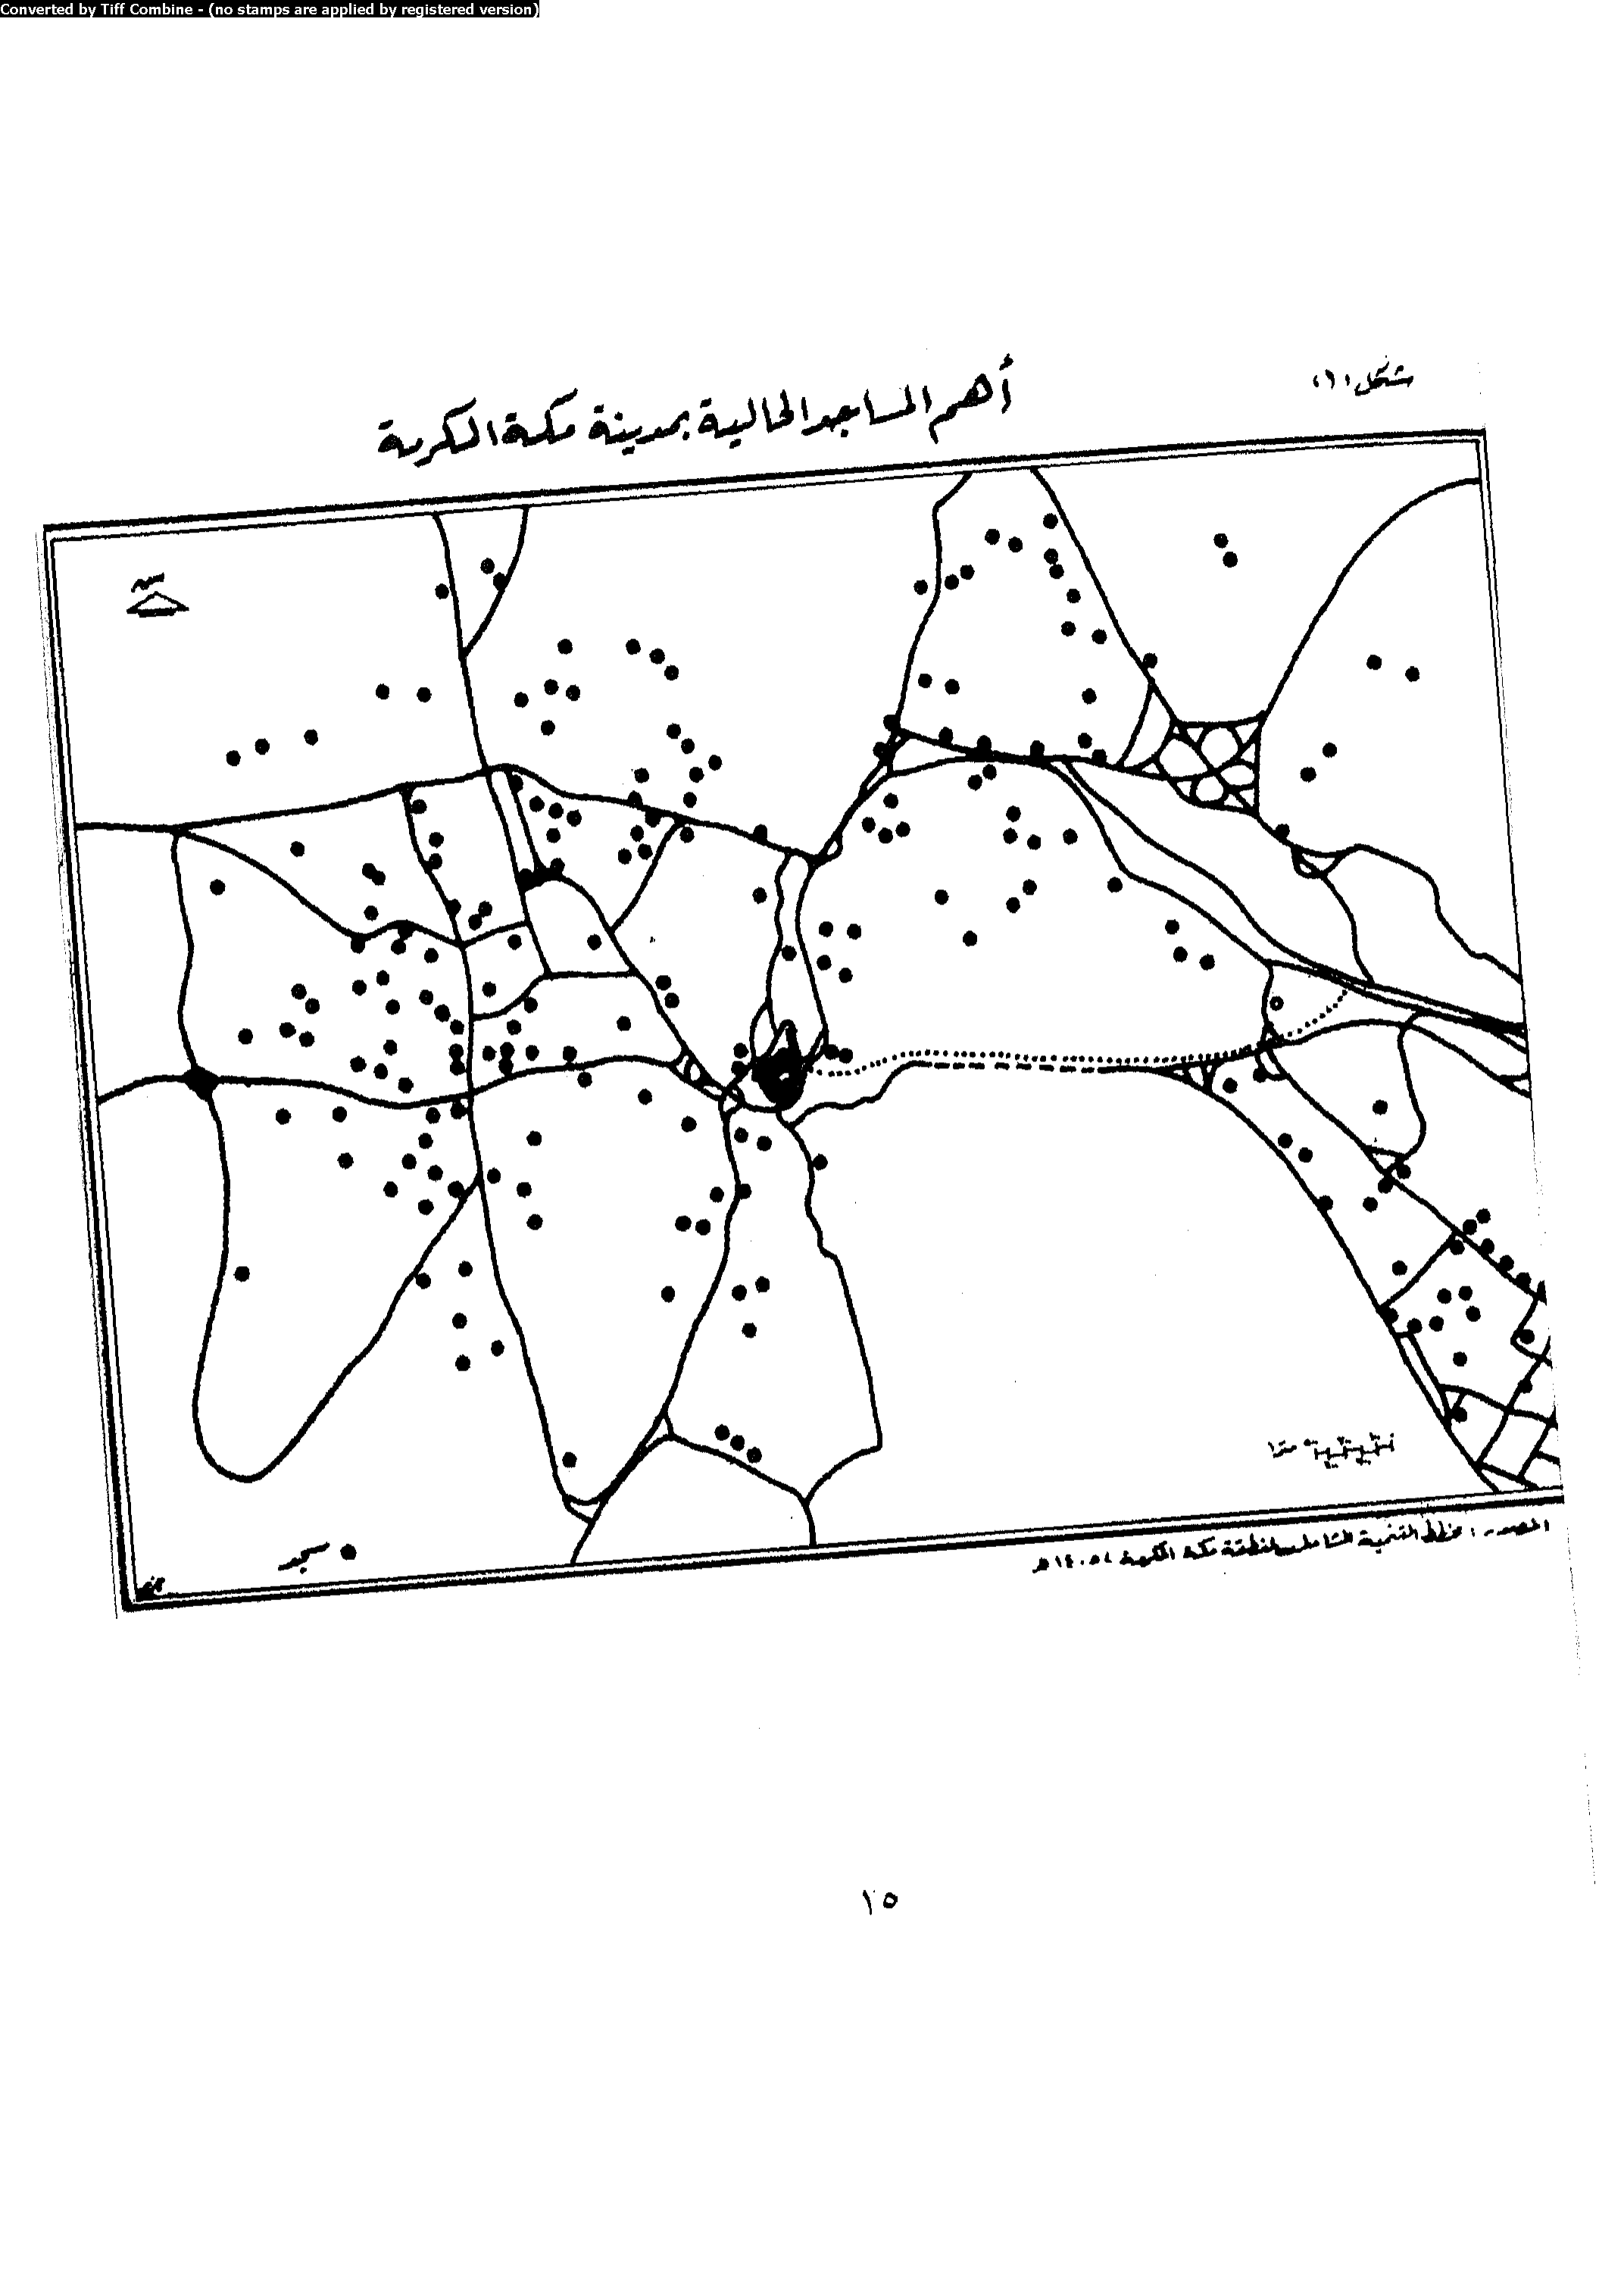 Converted by Tiff Combine - (no stamps are applied by registered version)
شكل (١)
أهم المساجد الحالية بمدينة مكة المكرمة
مسجد
المصدر: مخطط التنمية الشاملة لمنطقة مكة المكرمة ١٤٠٥هـ
١٥